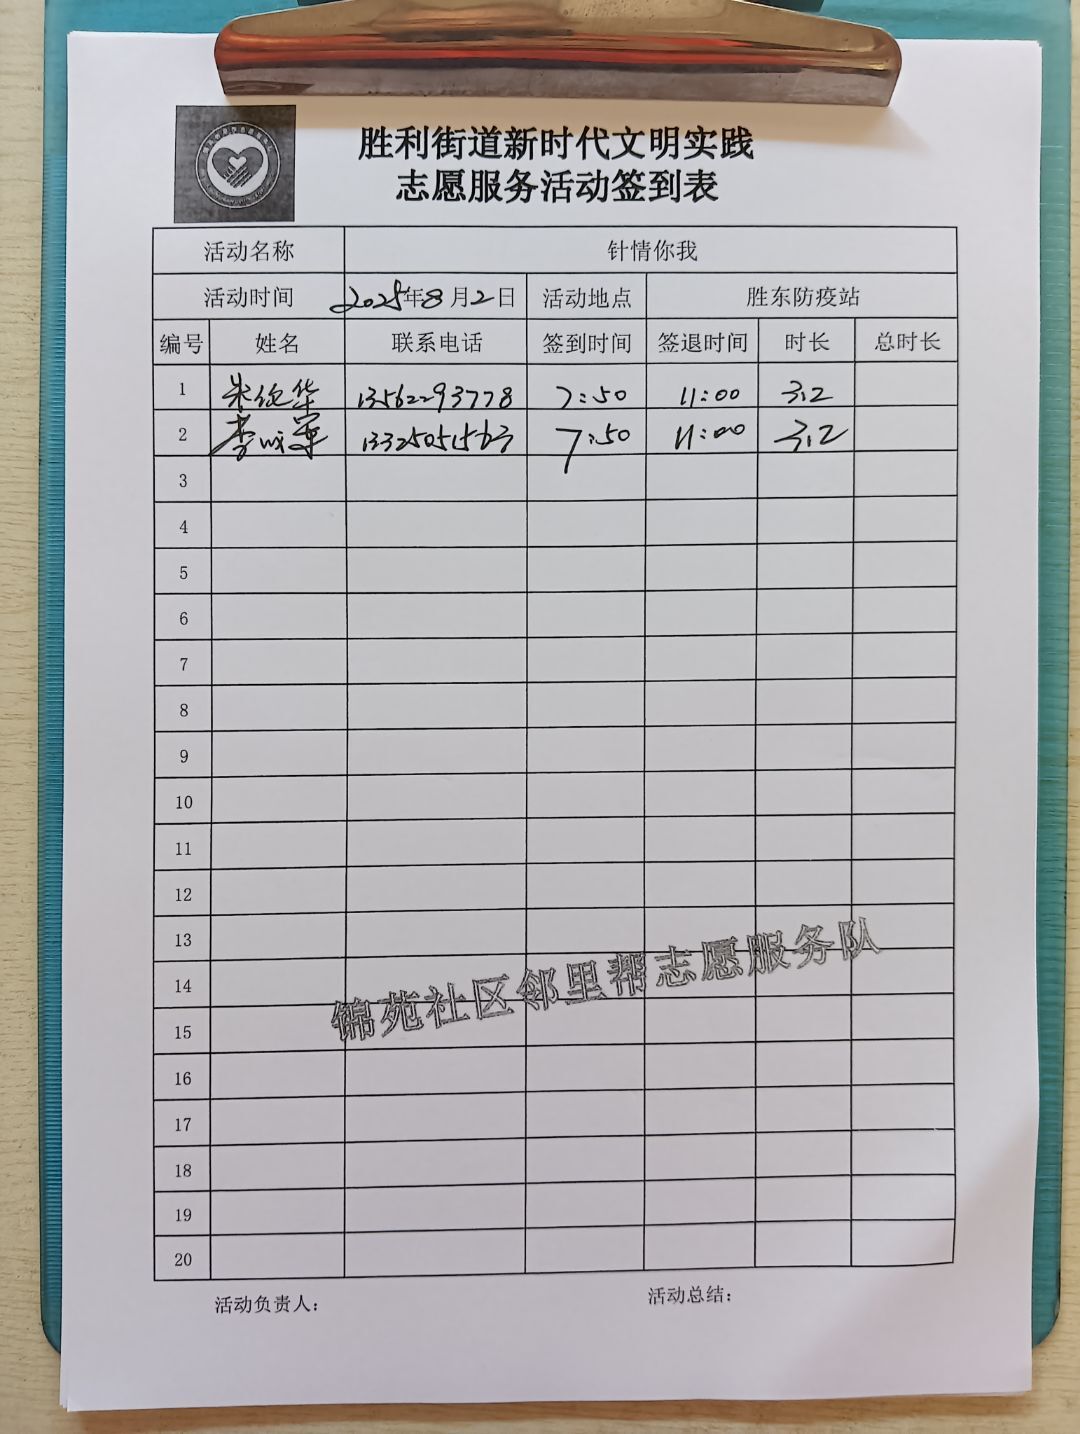 胜利街道新时代文明实践
志愿服务活动签到表
活动名称 针情你我
活动时间 2025年8月2日 活动地点 胜东防疫站
编号 姓名 联系电话 签到时间 签退时间 时长 总时长
1 朱 华 13562293778 7:50 11:00 3.2
2 李 军 13325051563 7:50 11:00 3.2
3
4
5
6
7
8
9
10
11
12
13
14
锦苑社区邻里帮志愿服务队
15
16
17
18
19
20
活动负责人: 活动总结: